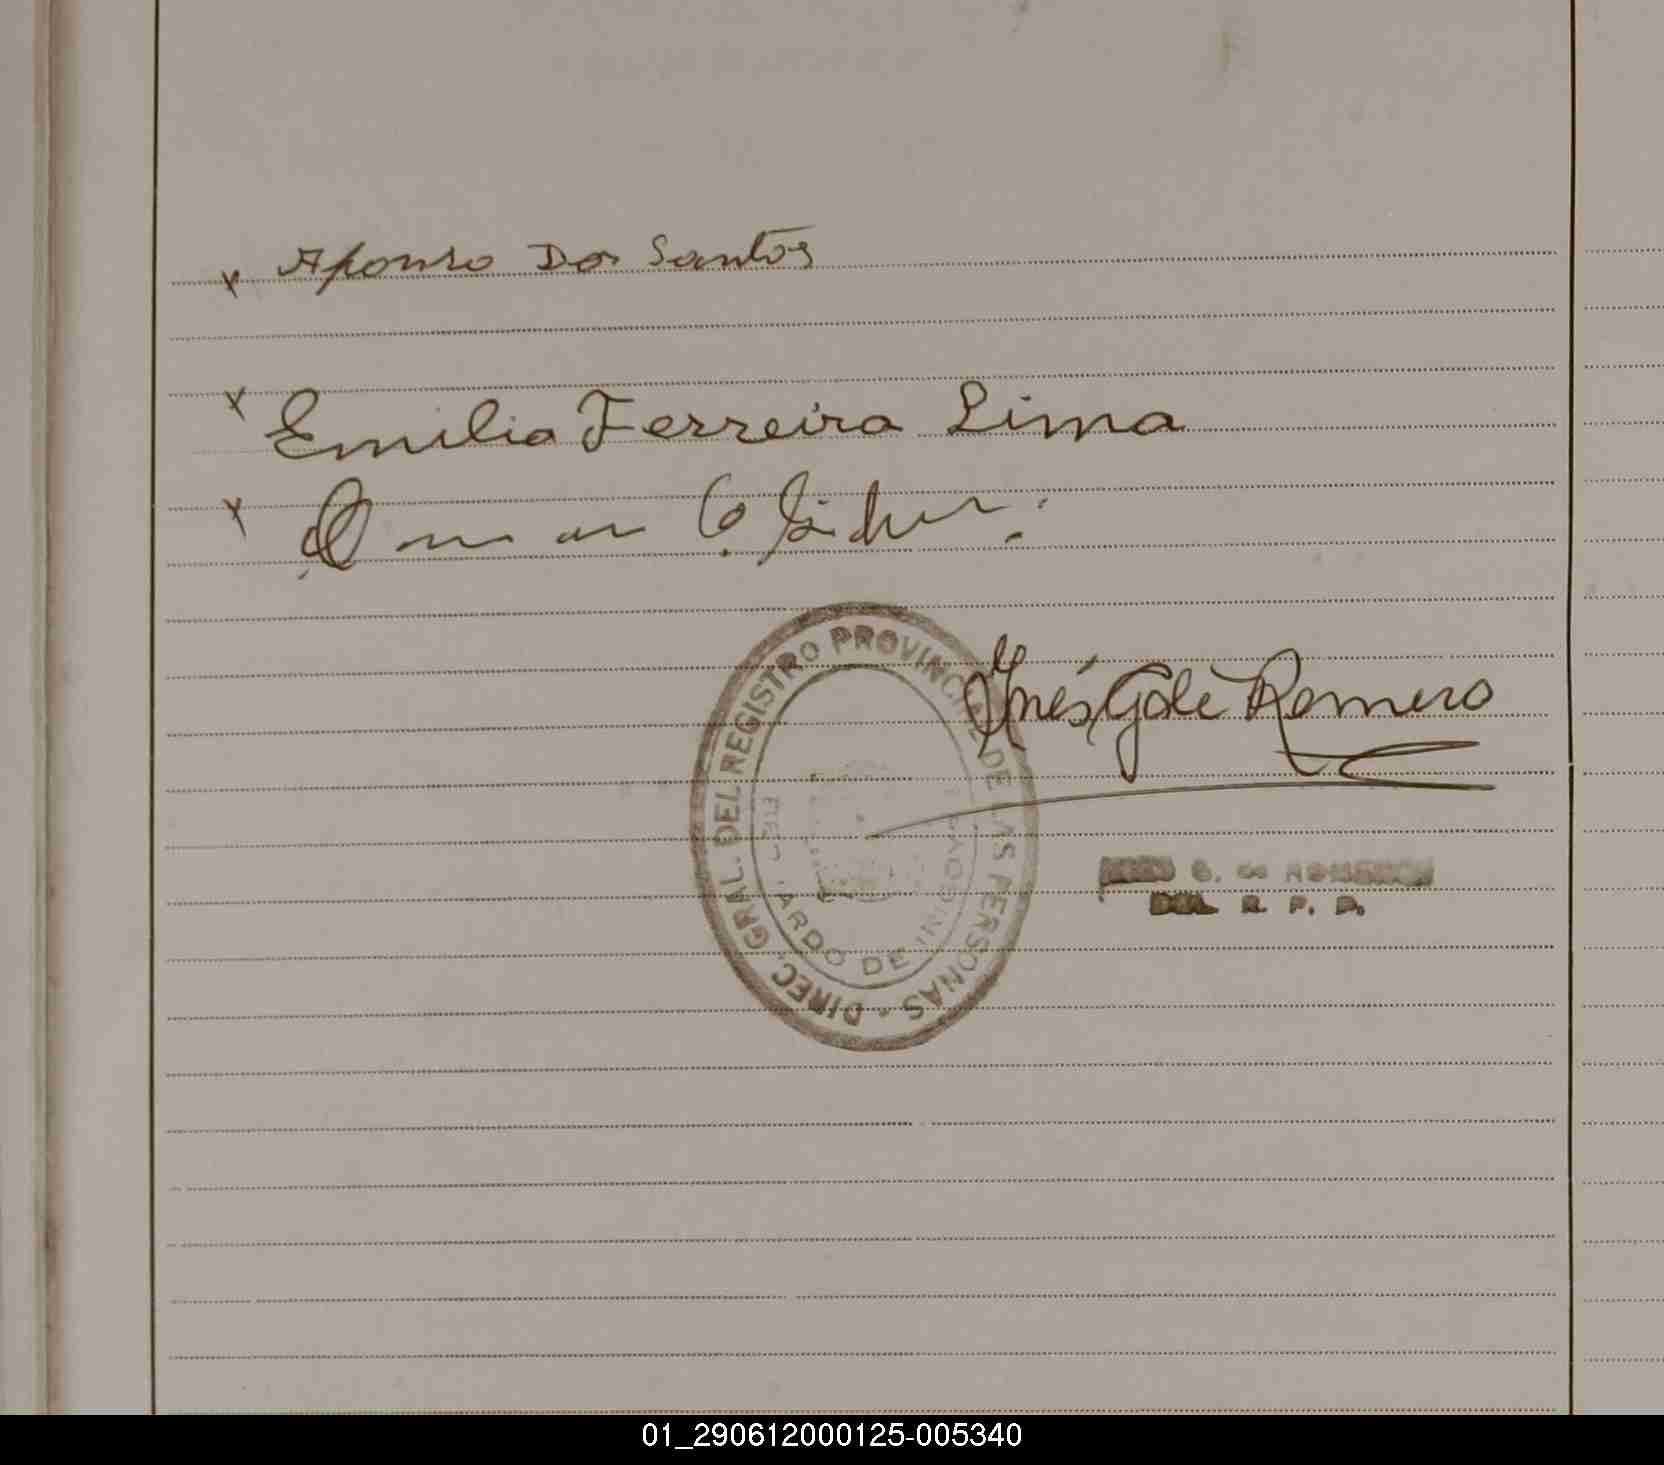 x Afonso Dos Santos
x Emilia Ferreira Lima
x Omar
Inés G de Romero
DIREC. GRAL. DEL REGISTRO PROVINCIAL DE LAS PERSONAS
DE IRIGOYEN
G. de ROMERO
R. P. P.
01_290612000125-005340